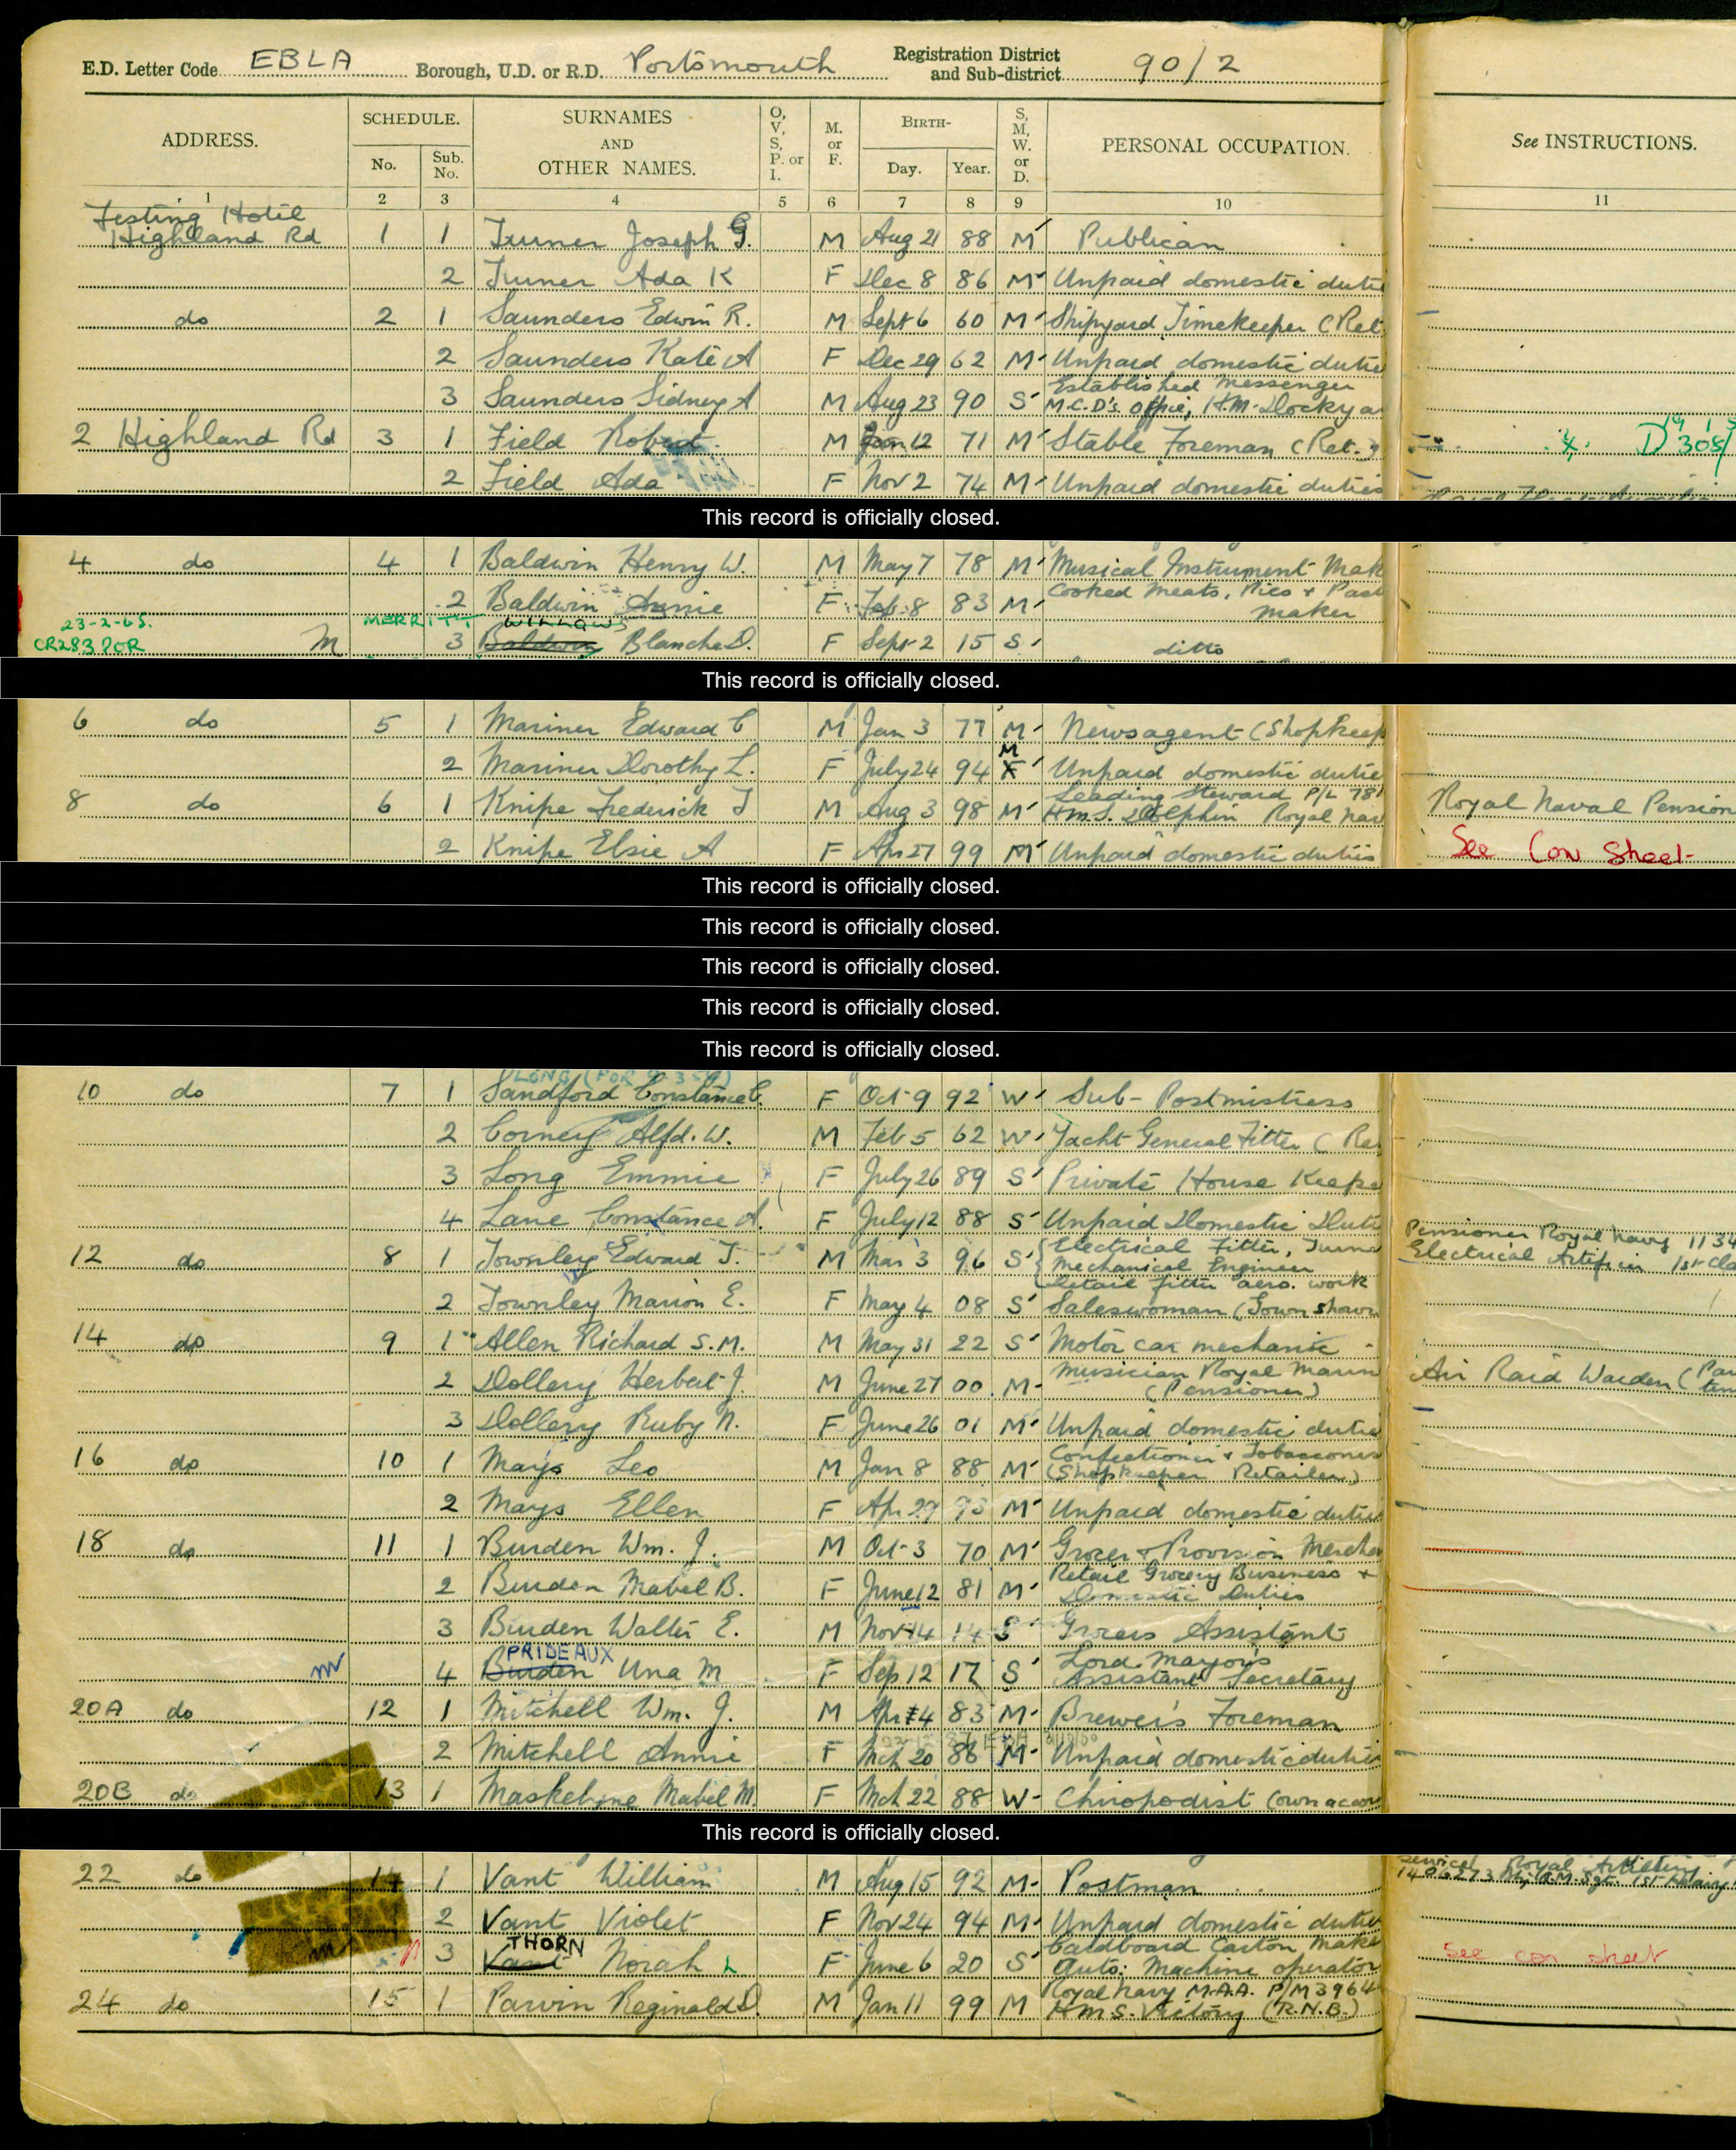 E.D. Letter Code EBLA Borough, U.D. or R.D. Portsmouth Registration District and Sub-district 90/2
ADDRESS. SCHEDULE. No. Sub. No. SURNAMES AND OTHER NAMES. O, V, S, P. or I. M. or F. BIRTH- Day. Year. S, M, W. or D. PERSONAL OCCUPATION. See INSTRUCTIONS.
1 2 3 4 5 6 7 8 9 10 11
Festing Hotel
Highland Rd 1 1 Turner Joseph G. M Aug 21 88 M Publican
2 Turner Ada K F Dec 8 86 M Unpaid domestic dutie
do 2 1 Saunders Edwin R. M Sept 6 60 M Shipyard Timekeeper (Ret.
2 Saunders Kate A F Dec 29 62 M Unpaid domestic dutie
3 Saunders Sidney A M Aug 23 90 S Established Messenger
M.C.D's Office, H.M. Dockya
2 Highland Rd 3 1 Field Robert M Jan 12 71 M Stable Foreman (Ret.)
2 Field Ada F Nov 2 74 M Unpaid domestic duties
This record is officially closed.
4 do 4 1 Baldwin Henry W. M May 7 78 M Musical Instrument Mak
2 Baldwin Annie F Feb 8 83 M Cooked Meats, Pies + Past
maker
23-2-65. MERRITT WILLAWS
CR283 POR M 3 Baldwin Blanche D. F Sept 2 15 S ditto
This record is officially closed.
6 do 5 1 Mariner Edward C M Jan 3 77 M Newsagent (Shopkeep
M
2 Mariner Dorothy L. F July 24 94 F Unpaid domestic dutie
8 do 6 1 Knipe Frederick J M Aug 3 98 M Leading Steward P/L 781
H.M.S. Dolphin Royal Nav Royal Naval Pension
2 Knipe Elsie A F Apr 27 99 M Unpaid domestic duties See Con Sheet
This record is officially closed.
This record is officially closed.
This record is officially closed.
This record is officially closed.
This record is officially closed.
10 do 7 1 Sandford Constance C. F Oct 9 92 W Sub-Postmistress
2 Corney Alfd. W. M Feb 5 62 W Yacht General Fitter (Re
3 Long Emmie F July 26 89 S Private House Keepe
4 Lane Constance A. F July 12 88 S Unpaid Domestic Duti
Pensioner Royal Navy 1134
12 do 8 1 Townley Edward J. M Mar 3 96 S Electrical Fitter, Turne Electrical Artificer 1st Cla
Mechanical Engineer
Detail fitter aero. work
2 Townley Marion E. F May 4 08 S Saleswoman (Gown show
14 do 9 1 Allen Richard S.M. M May 31 22 S Motor car mechanic
2 Dollery Herbert J. M June 27 00 M Musician Royal Marin
(Pensioner) Air Raid Warden (Par
3 Dollery Ruby N. F June 26 01 M Unpaid domestic dutie
16 do 10 1 Mays Leo M Jan 8 88 M Confectioner & Tobacconis
(Shopkeeper Retailer)
2 Mays Ellen F Apr 29 93 M Unpaid domestic dutie
18 do 11 1 Burden Wm. J. M Oct 3 70 M Grocer & Provision Mercha
2 Burden Mabel B. F June 12 81 M Retail Grocery Business +
Domestic Duties
3 Burden Walter E. M Nov 14 14 S Grocers Assistant
PRIDEAUX
m 4 Burden Una M F Sep 12 17 S Lord Mayor's
Assistant Secretary
20A do 12 1 Mitchell Wm. J. M Apr 4 83 M Brewer's Foreman
2 Mitchell Annie F Mch 20 86 M Unpaid domestic dutie
20B do 13 1 Maskelyne Mabel M. F Mch 22 88 W Chiropodist (own accou
This record is officially closed.
22 do 14 1 Vant William M Aug 15 92 M Postman
2 Vant Violet F Nov 24 94 M Unpaid domestic dutie
THORN
m 3 Vant Norah L F June 6 20 S Cardboard Carton Make
Auto: Machine operator See con sheet
24 do 15 1 Parvin Reginald D. M Jan 11 99 M Royal Navy M.A.A. P/M 3964
H.M.S. Victory (R.N.B.)